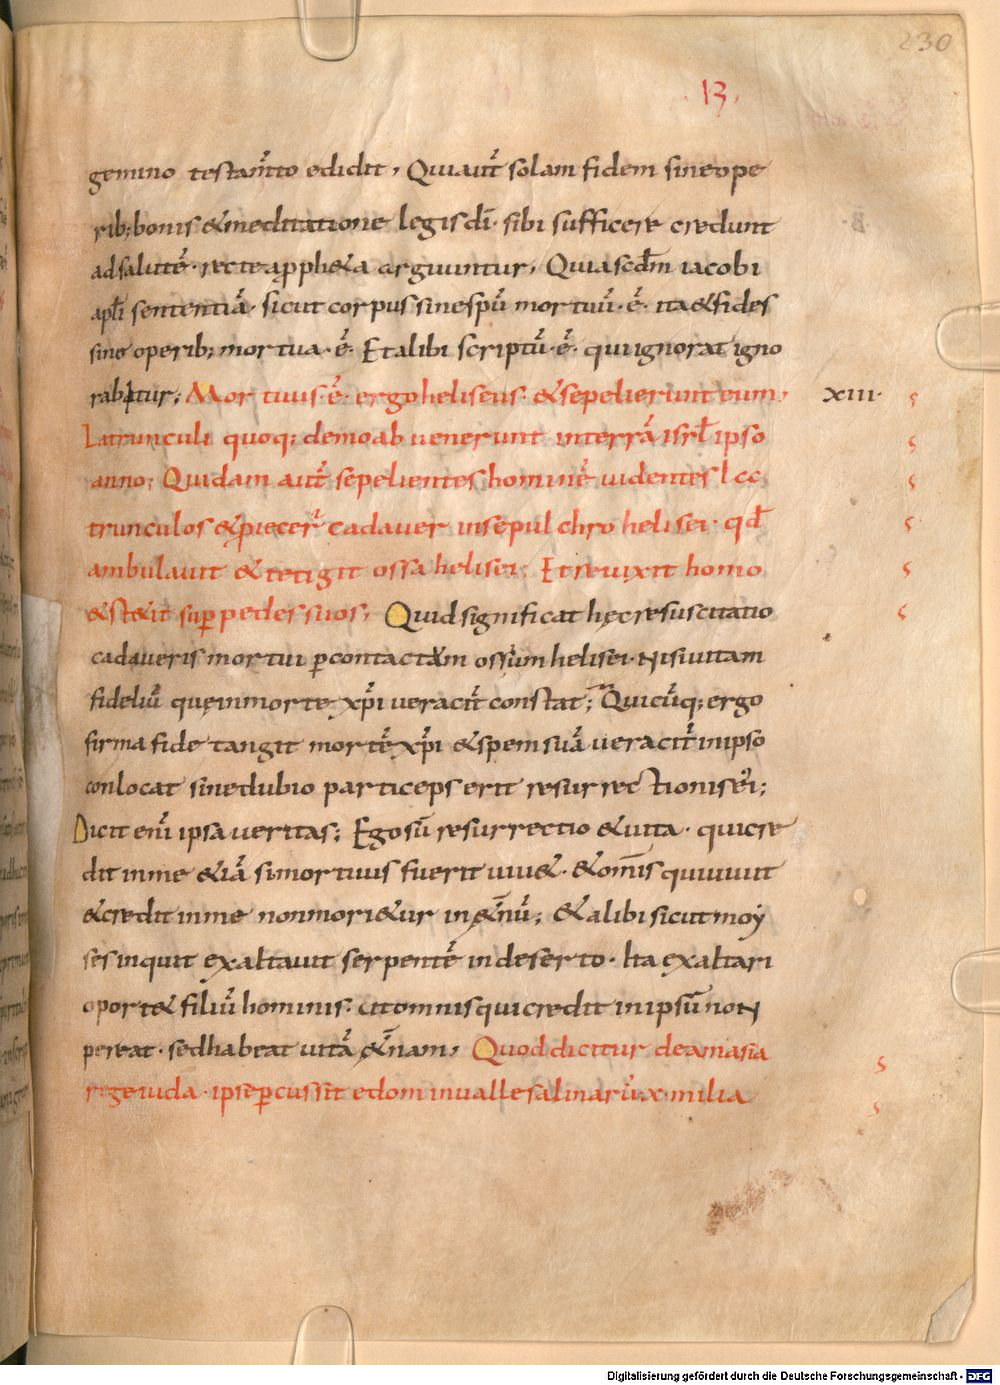 230
13
gemino testam̄to edidit, Qui aut̄ solam fidem sine ope
rib; bonis & meditatione legis dī· sibi sufficere credunt
ad salutē· recte a ꝓph&a arguuntur, Quia scdm̄ iacobi
apl̄i sententiā· sicut corpus sine spū mortuū·ē· ita & fides
sine operib; mortua·ē· Et alibi scriptū·ē· qui ignorat igno
rabitur; Mortuus·ē· ergo heliseus· & sepelierunt eum, XIII· ς
Latrunculi quoq; de moab uenerunt in terrā isrl̄ ipso ς
anno; Quidam aut̄ sepelientes hominē uidentes la ς
trunculos & ꝓiecer̄ cadauer in sepulchro helisei· qd̄ ς
ambulauit & tetigit ossa helisei; Et reuixit homo ς
& st&it suꝑ pedes suos, Quid significat hęc resuscitatio ς
cadaueris mortui ꝑ contactum ossium helisei· Nisi uitam
fideliū quę in morte xp̄i ueracit̄ constat; Quicūq; ergo
firma fide tangit mortē xp̄i & spem suā ueracit̄ in ipso
conlocat sine dubio particeps erit resurrectionis ei;
Dicit enī ipsa ueritas; Ego sū resurrectio & uita· qui cre
dit in me &iā si mortuus fuerit uiu&· & om̄is qui uiuit
& credit in me non mori&ur in &̄nū; & alibi sicut moy
ses inquit exaltauit serpentē in deserto· Ita exaltari
oport& filiū hominis· ut omnis qui credit in ipsū non
pereat· sed habeat uitā &̄nam, Quod dicitur de amasia ς
rege iuda· ipse ꝑcussit edom in ualle salinarū·x·milia ς
Digitalisierung gefördert durch die Deutsche Forschungsgemeinschaft - DFG